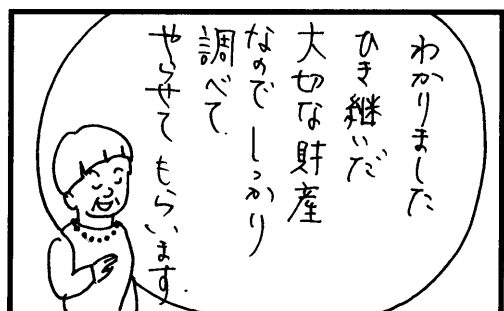 わかりました
ひき継いだ
大切な財産
なので しっかり
調べて
やらせて もらいます.